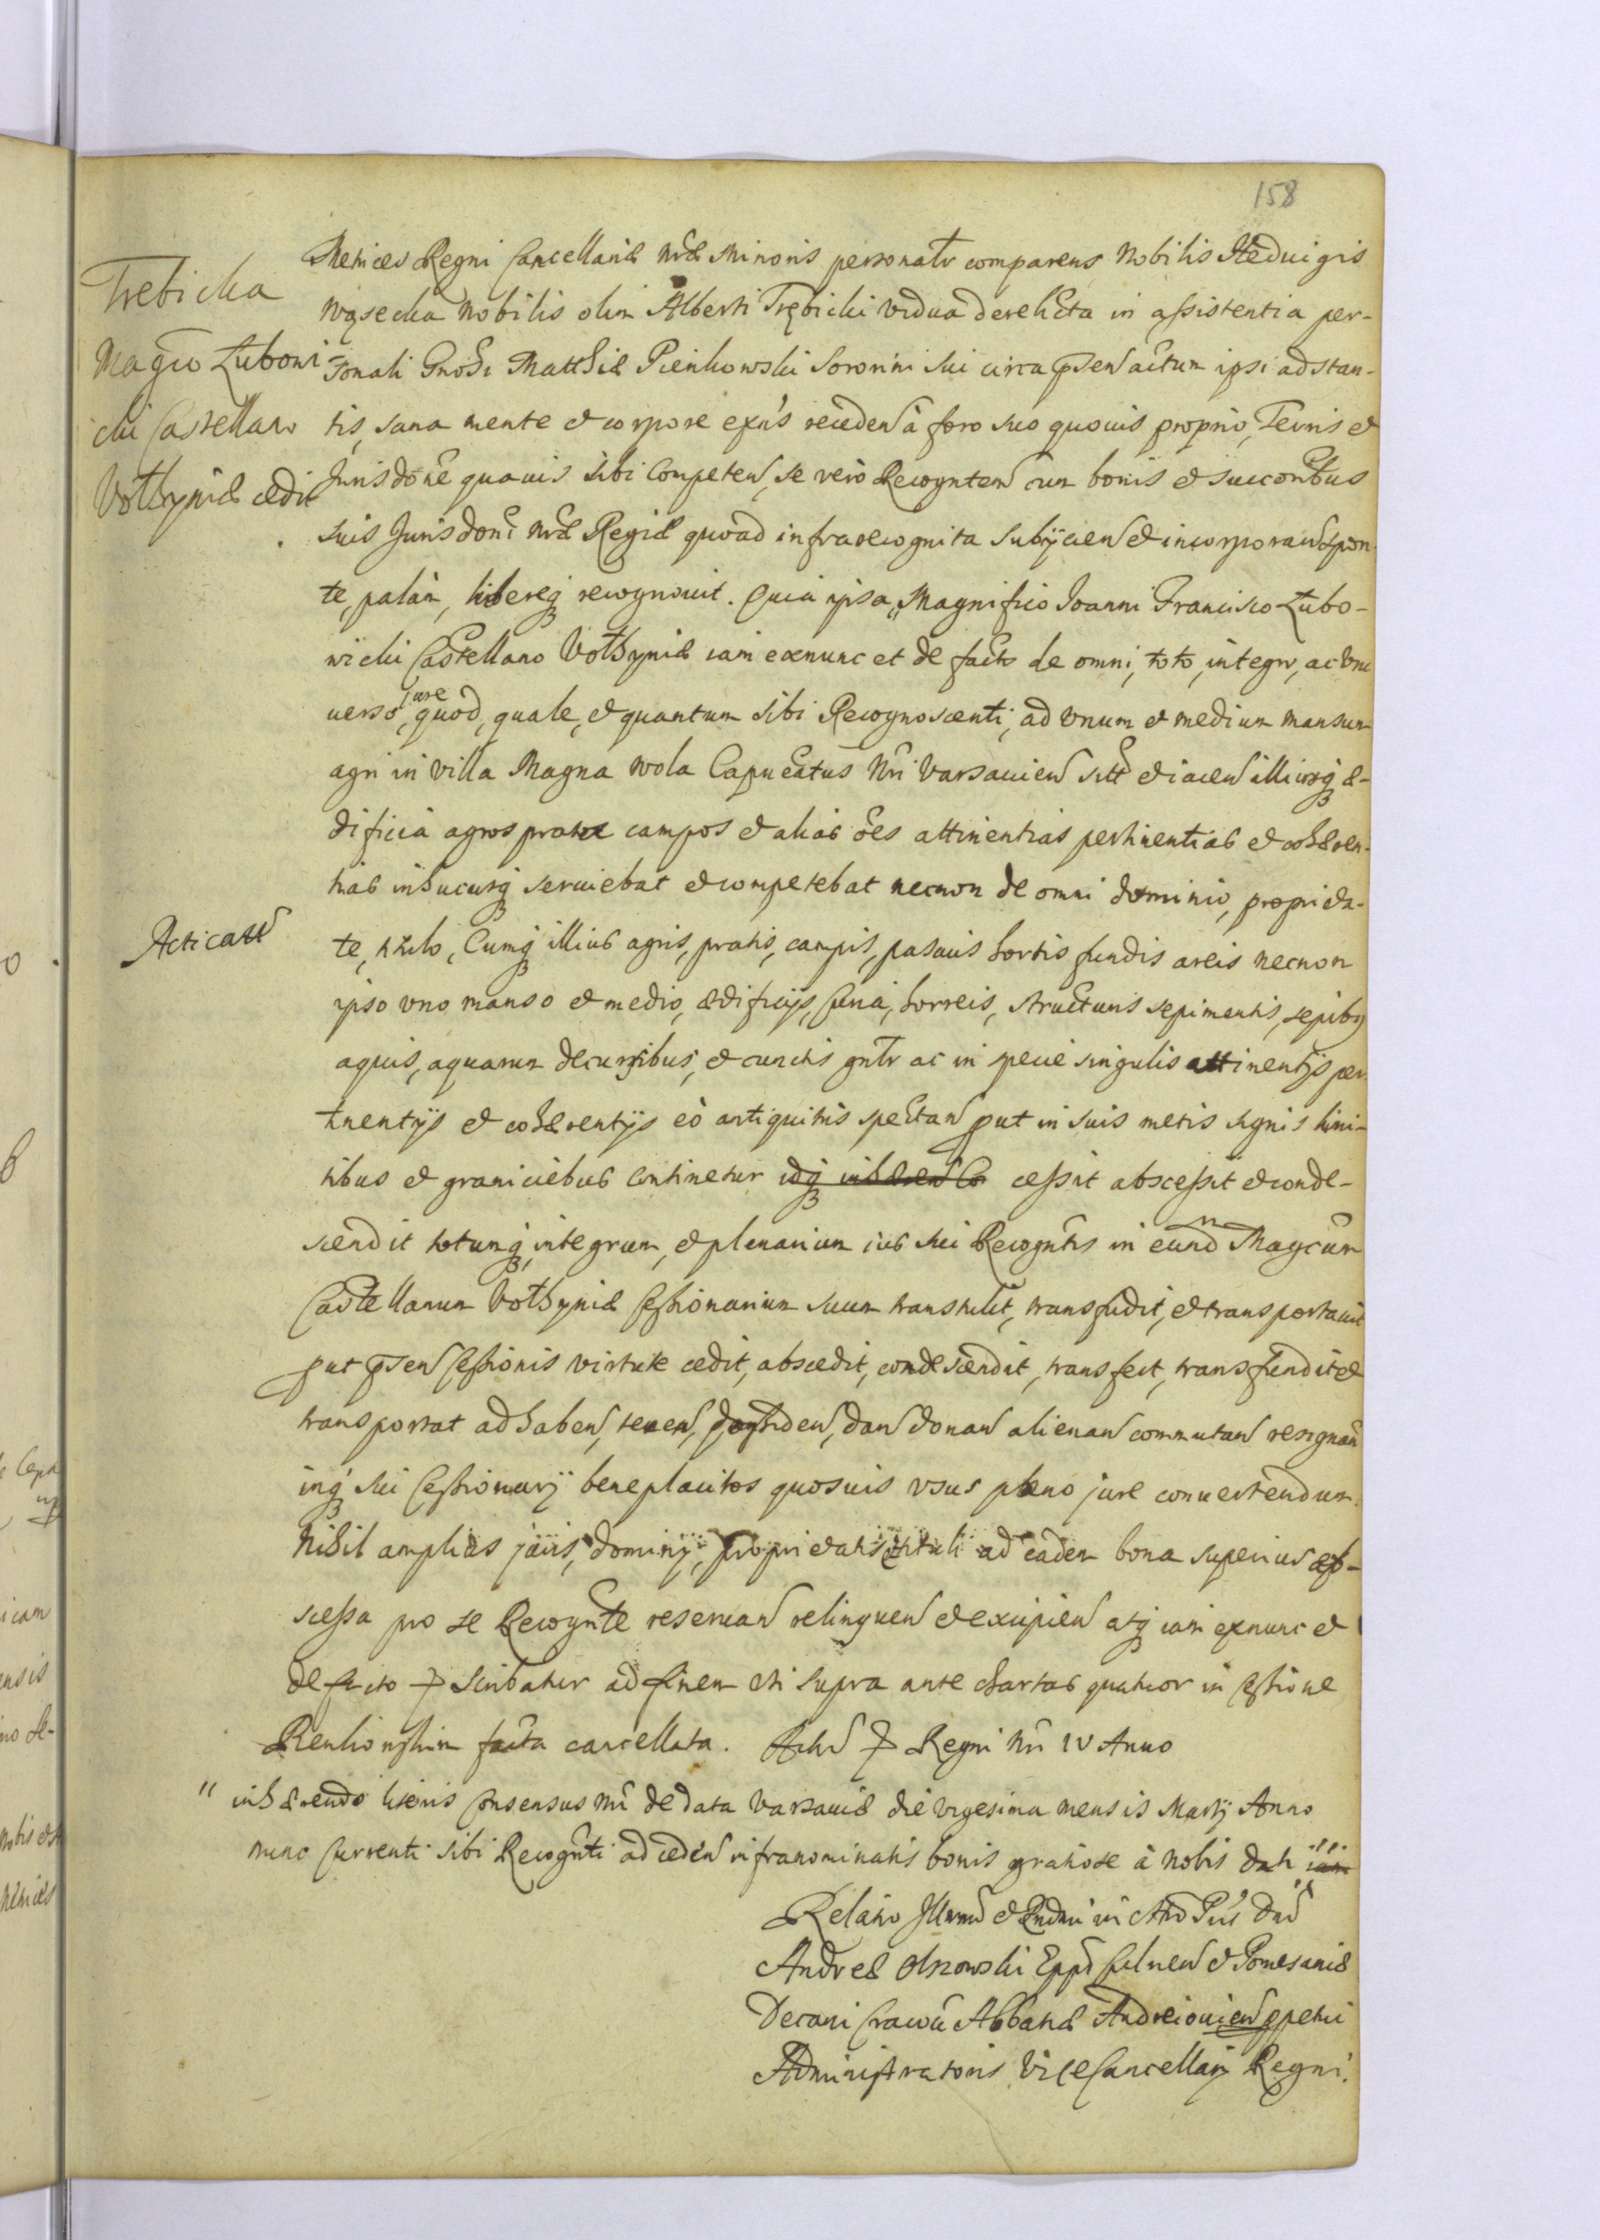 158
Trebicka
Magco Lubowi
cki Castellano
Volhyniæ cedit
Acticatt
Metrices Regni Cancellariæ nræ Minoris personalr comparens Nobilis Heduigis
Wąsecka Nobilis olim Alberti Trębicki vidua derelicta in assistentia per-
sonali Gnosi Matthiæ Pieńkowski Sororini sui circa psen actum ipsi adstan-
tis, sana mente et corpore exns receden à foro suo quouis proprio, Terris et
Jurisdone quauis sibi Competen, se verò Recognten cum bonis et successoribus
suis Jurisdoni nræ Regiæ quoad infrarecognita subijcien et incorporan spon-
te, palàm, libereq recognouit. Quia ipsa " Magnifico Joanni Francisco Lubo-
wicki Castellano Volhyniæ iam exnunc et de facto de omni, toto, integro, ac vni
uerso, jure quod, quale, et quantum sibi Recognoscenti, ad vnum et medium mansum
agri in villa Magna Wola Capneatus Nri Varsauien sitt et iacen illiusq æ-
dificia agros prata campos et alias oes attinentias pertinentias et cohæren-
tias inhucusq seruiebat et competebat necnon de omni dominio, proprieta-
te, titulo, Cumq illius agris, pratis, campis, pascuis hortis fundis areis necnon
ipso vno manso et medio, ædificijs, Curia, horreis, structuris sepimentis, sepibus
aquis, aquarum decursibus, et cunctis gntr ac in specie singulis attinentijs per
tinentijs et cohærentijs eò antiquitùs spectan put in suis metis signis limi-
tibus et graniciebus continetur idq inhæren Co cessit abscessit et conde-
scendit totumq, integrum, et plenarium ius sui Recogntis in eund Magcum
Castellanum Volhyniæ Cessionarium suum transtulit, transfudit, et transportauit
put psen Cessionis virtute cedit, abscedit, condescendit, transfert, transfundit et
transportat ad haben, tenen, possiden, dan donan alienan commutan resignan
inq sui Cessionarij beneplacitos quosuis vsus pleno jure conuertendum.
Nihil amplius juris, dominij, proprietatis, tituli ad eadem bona superius ab-
scessa pro se Recognte reseruan relinquen et excipien atq iam exnunc et
de facto scribatur ad finem uti supra ante chartas quatuor in Cessione
facta cancellata. Actu Regni Nri IV Anno
" inhærendo literis Consensus nri de data Varsauiæ die vigesima mensis Martij Anno
nunc Currenti sibi Recognti ad ceden infranominatis bonis gratiose à nobis dati iam
Relatio Illrmi et Rndmi in Chro Pris Dni
Andreæ Olszowski Eppi Culmen et Pomesaniæ
Decani Cracou Abbatiæ Andreiouien ppetui
Administratoris ViceCancellarij Regni.